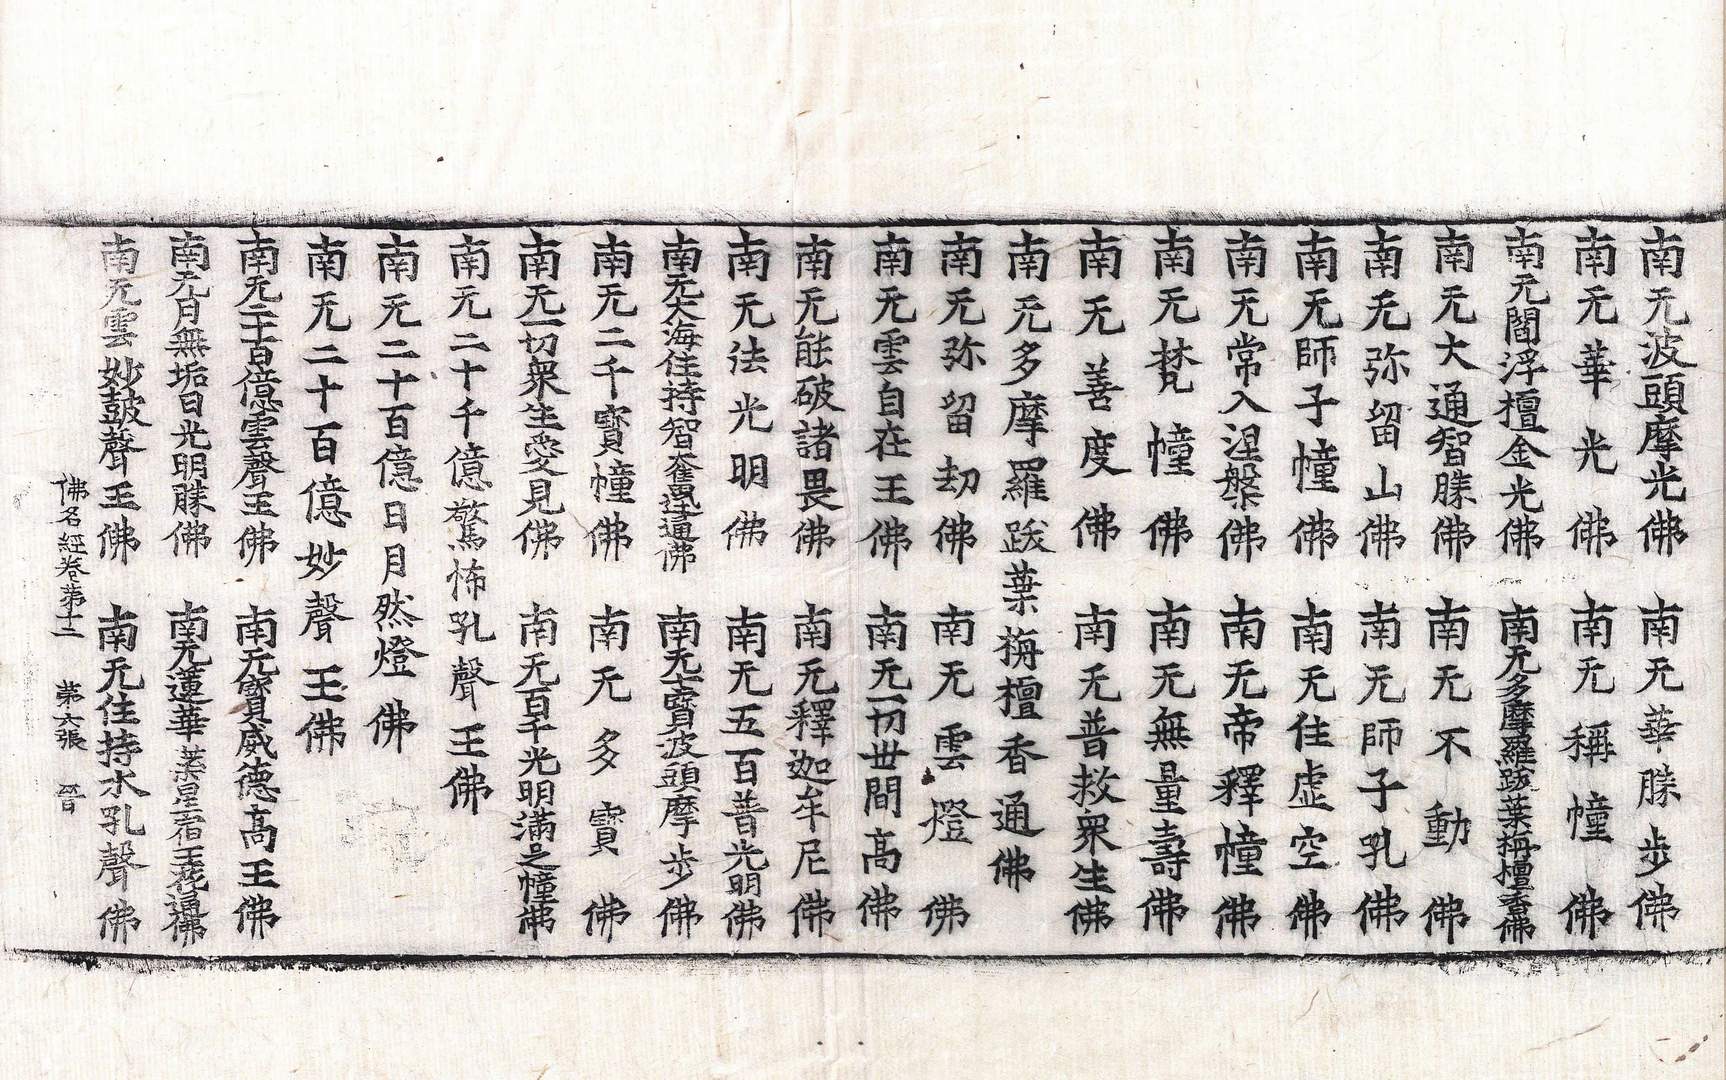 南无波頭摩光佛　南无華勝步佛
南无華光佛　南无稱幢佛
南无閻浮檀金光佛　南无多摩羅跋葉栴檀香佛
南无大通智勝佛　南无不動佛
南无弥留山佛　南无師子吼佛
南无師子幢佛　南无住虛空佛
南无常入涅槃佛　南无帝釋幢佛
南无梵幢佛　南无無量壽佛
南无善度佛　南无普救衆生佛
南无多摩羅跋葉栴檀香通佛
南无弥留劫佛　南无雲燈佛
南无雲自在王佛　南无一切世間高佛
南无能破諸畏佛　南无釋迦牟尼佛
南无法光明佛　南无五百普光明佛
南无大海住持智奮迅通佛　南无七寶波頭摩步佛
南无二千寶幢佛　南无多寶佛
南无一切衆生愛見佛　南无百千光明滿之幢佛
南无二十千億驚怖吼聲王佛
南无二十百億日月然燈佛
南无二十百億妙聲王佛
南无二千百億雲聲王佛　南无寶威德高王佛
南无月無垢日光明勝佛　南无蓮華葉星宿王花通佛
南无雲妙鼓聲王佛　南无住持水吼聲佛
佛名經卷第十二　第六張　晉